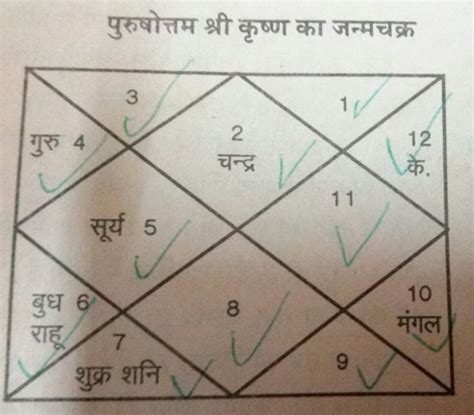 पुरुषोत्तम श्री कृष्ण का जन्मचक्र
3
1
गुरु 4
2
चन्द्र
12
के.
सूर्य 5
11
बुध 6
राहू
7
शुक्र शनि
8
9
10
मंगल